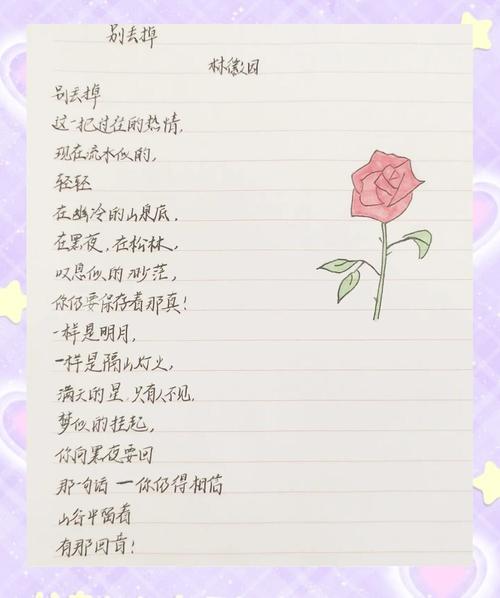 别丢掉
林徽因
别丢掉
这一把过往的热情,
现在流水似的,
轻轻
在幽冷的山泉底,
在黑夜,在松林,
叹息似的渺茫,
你仍要保存着那真!
一样是明月,
一样是隔山灯火,
满天的星,只有人不见,
梦似的挂起,
你向黑夜要回
那一句话—你仍得相信
山谷中留着
有那回音!